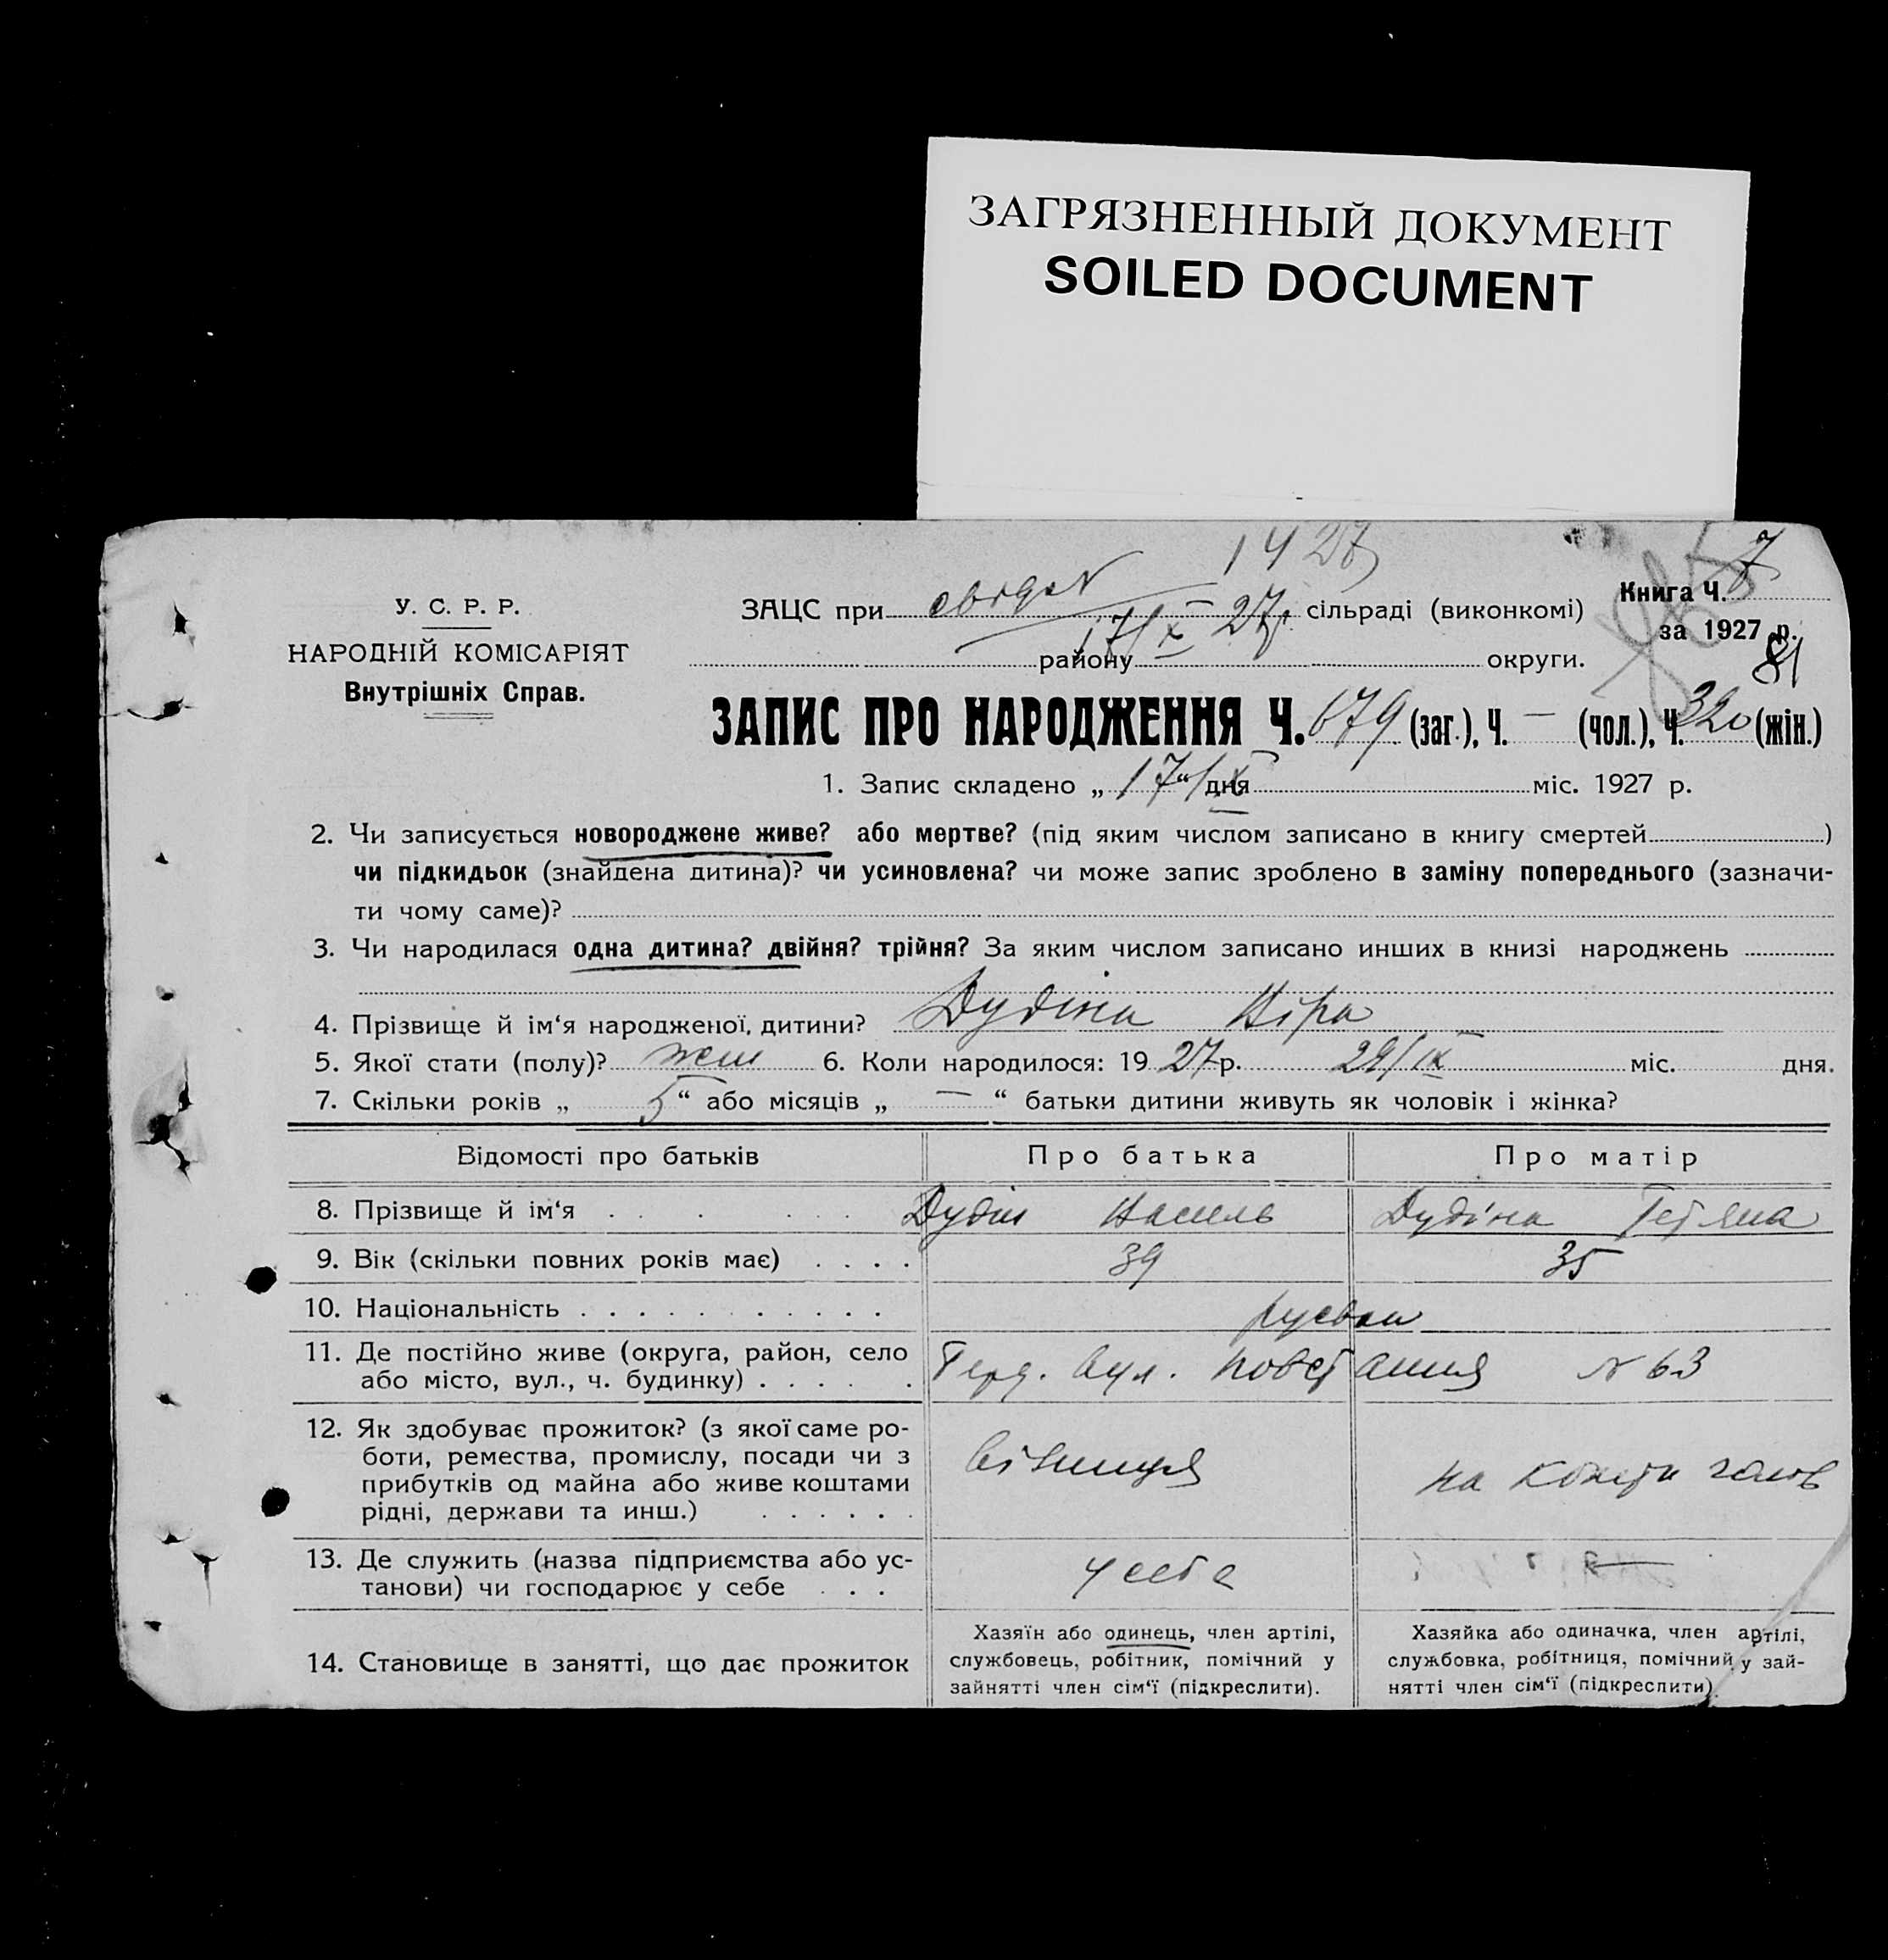 ЗАГРЯЗНЕННЫЙ ДОКУМЕНТ
SOILED DOCUMENT
У. С. Р. Р.
НАРОДНІЙ КОМІСАРІЯТ
Внутрішніх Справ.
ЗАЦС при 17/X – 27р. сільраді (виконкомі)
району округи.
Книга Ч. 7
за 1927 р.
81
ЗАПИС ПРО НАРОДЖЕННЯ Ч. 679 (заг.), Ч. — (чол.), Ч. 320 (жін.)
1. Запис складено „ 17 “ дня X міс. 1927 р.
2. Чи записується новороджене живе? або мертве? (під яким числом записано в книгу смертей )
чи підкидьок (знайдена дитина)? чи усиновлена? чи може запис зроблено в заміну попереднього (зазначи-
ти чому саме)?
3. Чи народилася одна дитина? двійня? трійня? За яким числом записано инших в книзі народжень
4. Прізвище й ім‘я народженої дитини? Дудіна Кіра
5. Якої стати (полу)? жін 6. Коли народилося: 1927 р. 29/IX міс. дня.
7. Скільки років „ 5 “ або місяців „ — “ батьки дитини живуть як чоловік і жінка?
Відомості про батьків Про батька Про матір
8. Прізвище й ім‘я Дудін Дудіна Тетяна
9. Вік (скільки повних років має) 39 35
10. Національність
11. Де постійно живе (округа, район, село
або місто, вул., ч. будинку) вул. Повстання № 63
12. Як здобуває прожиток? (з якої саме ро-
боти, ремества, промислу, посади чи з
прибутків од майна або живе коштами
рідні, держави та инш.) візниця на кошти чолов
13. Де служить (назва підприємства або ус-
танови) чи господарює у себе у себе —
14. Становище в занятті, що дає прожиток
Хазяїн або одинець, член артілі,
службовець, робітник, помічний у
зайнятті член сім‘ї (підкреслити).
Хазяйка або одиначка, член артілі,
службовка, робітниця, помічний у зай-
нятті член сім‘ї (підкреслити)